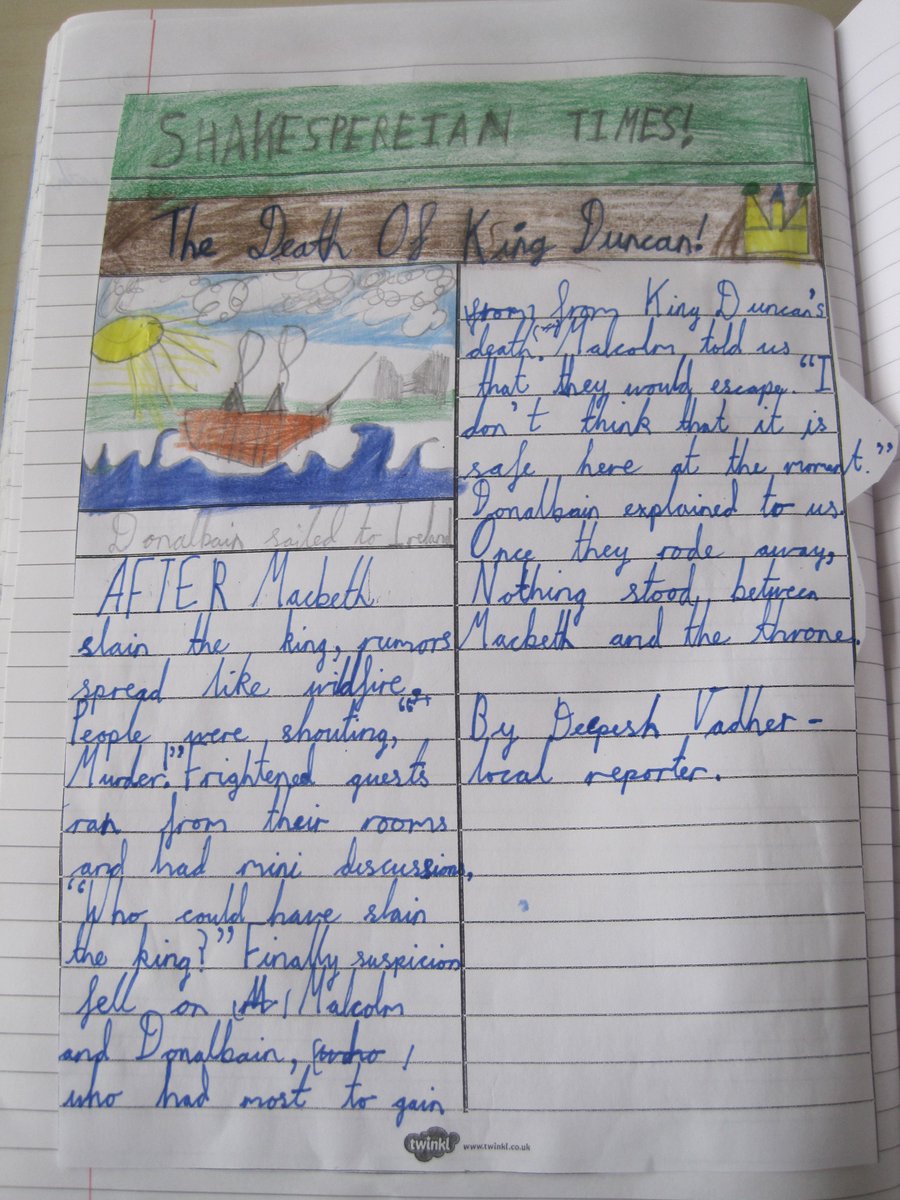 SHAKESPEREIAN TIMES!
The Death Of King Duncan!
Donalbain sailed to Ireland
AFTER Macbeth
slain the king, rumors
spread like wildfire.
People were shouting, “
Murder!” Frightened guests
ran from their rooms
and had mini discussions,
“Who could have slain
the king?” Finally suspicion
fell on Malcolm
and Donalbain, (who)
who had most to gain
from from King Duncan's
death. Malcolm told us
that they would escape. “I
don't think that it is
safe here at the moment.”
Donalbain explained to us.
Once they rode away,
Nothing stood between
Macbeth and the throne.
By Deepesh Vadher -
local reporter.
twinkl www.twinkl.co.uk